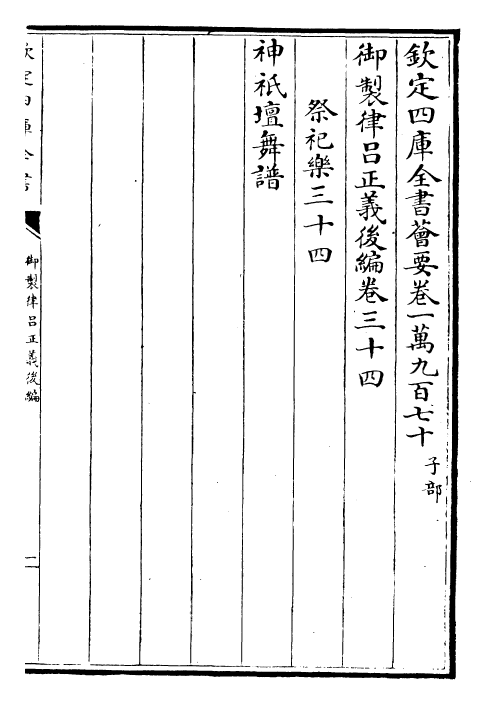 欽定四庫全書薈要卷一萬九百七十 子部
御製律呂正義後編卷三十四
祭祀樂三十四
神祇壇舞譜
欽定四庫全書
御製律呂正義後編
一